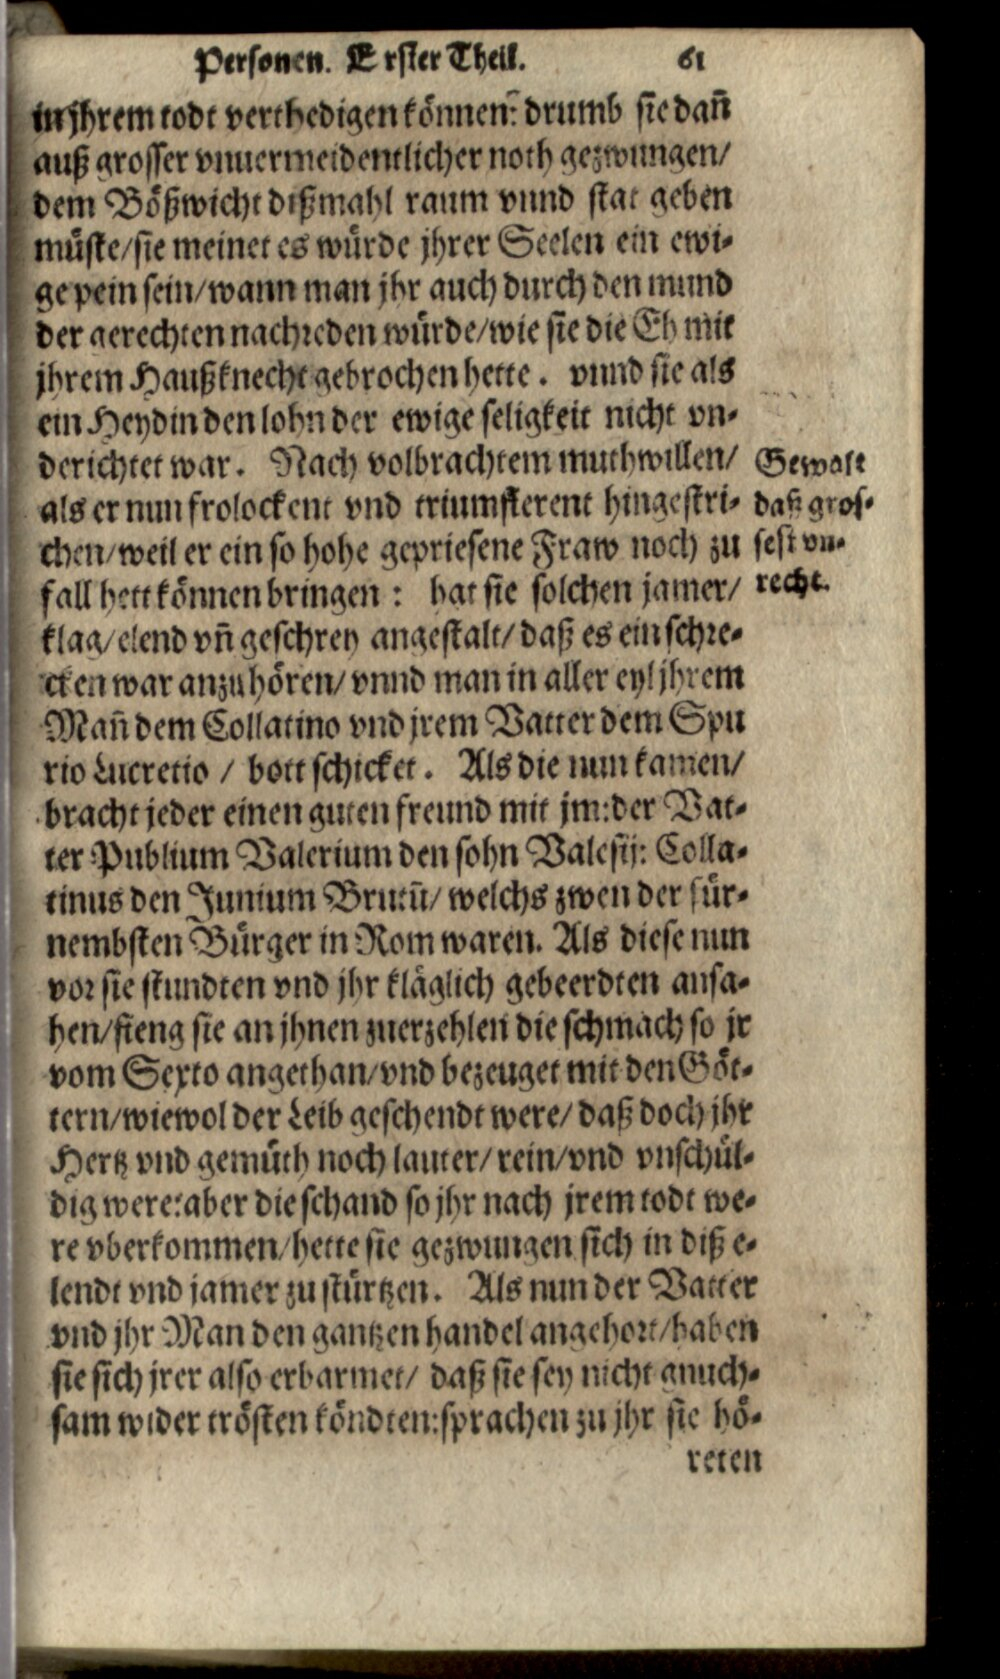 Personen. Erster Theil. 61
in jhrem todt verthedigen können: drumb sie dañ
auß grosser vnuermeidentlicher noth gezwungen/
dem Bößwicht dißmahl raum vnnd stat geben
müste/sie meinet es würde jhrer Seelen ein ewi-
ge pein sein/wann man jhr auch durch den mund
der gerechten nachreden würde/wie sie die Eh mit
jhrem Haußknecht gebrochen hette. vnnd sie als
ein Heydin den lohn der ewige seligkeit nicht vn-
derichtet war. Nach volbrachtem muthwillen/
als er nun frolockent vnd triumfferent hingestri-
chen/weil er ein so hohe gepriesene Fraw noch zu
fall hett können bringen: hat sie solchen jamer/
klag/elend vñ geschrey angestalt/daß es ein schre-
cken war anzuhören/vnnd man in aller eyl jhrem
Mañ dem Collatino vnd jrem Vatter dem Spu
rio Lucretio / bott schicket. Als die nun kamen/
bracht jeder einen guten freund mit jm:der Vat-
ter Publium Valerium den sohn Valesij: Colla-
tinus den Junium Brutũ/welchs zwen der für-
nembsten Bürger in Rom waren. Als diese nun
vor sie stundten vnd jhr kläglich gebeerdten ansa-
hen/fieng sie an jhnen zuerzehlen die schmach so jr
vom Sexto angethan/vnd bezeuget mit den Göt-
tern/wiewol der Leib geschendt were/daß doch jhr
Hertz vnd gemüth noch lauter/rein/vnd vnschül-
dig were:aber die schand so jhr nach jrem todt we-
re vberkommen/hette sie gezwungen sich in diß e-
lendt vnd jamer zu stürtzen. Als nun der Vatter
vnd jhr Man den gantzen handel angehort/haben
sie sich jrer also erbarmet/ daß sie sey nicht gnuch-
sam wider trösten köndten:sprachen zu jhr sie hö-
reten
Gewalt
daß gros-
sest vn-
recht.